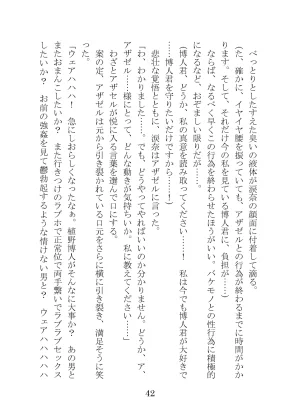 べっとりとしたすえた臭いの液体が涙奈の顔面に付着して滴る。
(た、確かに、イヤイヤ腰を振っていても、アザゼルとの行為が終わるまでに時間がかか
ります。そして、それだけ今の私を見ている博人君に、負担が……)
ならば、なるべく早くこの行為を終わらせたほうがいい。バケモノとの性行為に積極的
になるなど、おぞましい限りだが……。
(博人君、どうか、私の真意を読み取ってください……! 私は今でも博人君が大好きで
……博人君を守りたいだけですから……!)
悲壮な覚悟とともに、涙奈はアザゼルに言った。
「わ、わかりました……。でも、どうやってやればいいのか分かりません。どうか、ア、
アザゼル……様にとって、どんな動きが気持ちいいか、私に教えてください……」
わざとアザゼルが悦に入る言葉を選んで口にする。
案の定、アザゼルは元から引き裂かれている口元をさらに横に引き裂き、満足そうに笑
った。
「ウェアハハハ! 急にしおらしくなったなぁ。植野博人がそんなに大事か? あの男と
またおまんこしたいか? また行きつけのラブホで正常位で両手繋いでラブラブセックス
したいか? お前の強姦を見て鬱勃起するような情けない男と? ウェアハハハハハ
42